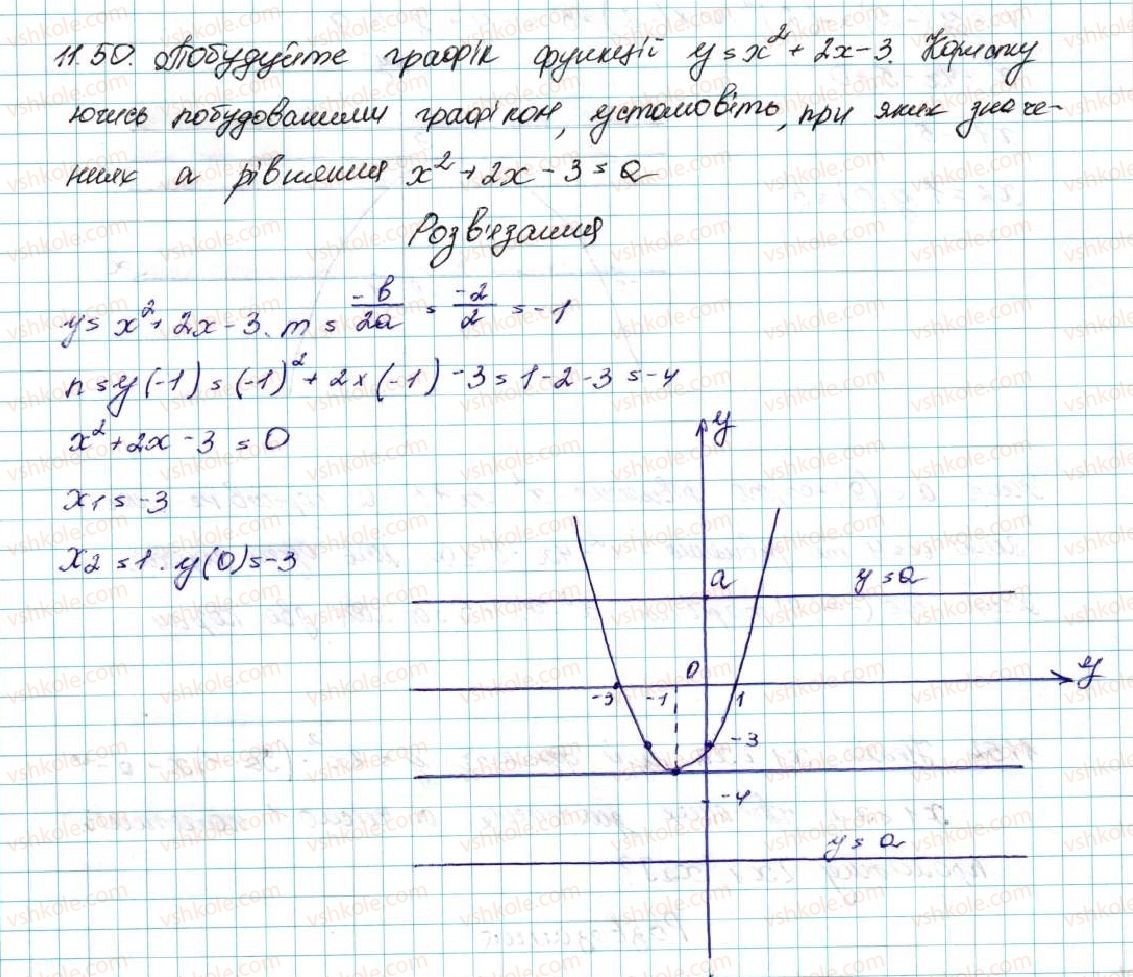 11.50. Побудуйте графік функції y = x² + 2x - 3. Користу
ючись побудованими графіком, установіть, при яких значе-
ннях а рівняння x² + 2x - 3 = a
Розв'язання
y = x² + 2x - 3. m = -b/2a = -2/2 = -1
n = y(-1) = (-1)² + 2 × (-1) - 3 = 1 - 2 - 3 = -4
x² + 2x - 3 = 0
x1 = -3
x2 = 1. y(0) = -3
y
a
y = a
0
y
-3
-1
1
-3
-4
y = a
vshkole.com